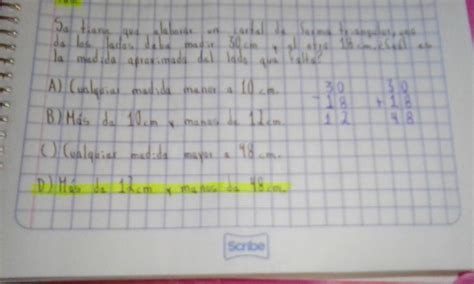 Se tiene que elaborar un cartel de forma triangular, uno
de los lados debe medir 30cm y el otro 18cm. ¿Cuál es
la medida aproximada del lado que falta?
A) Cualquier medida menor a 10cm.
B) Más de 10cm y menos de 12cm.
C) Cualquier medida mayor a 48cm.
D) Más de 12cm y menos de 48cm.
30 30
-18 +18
12 48
Scribe